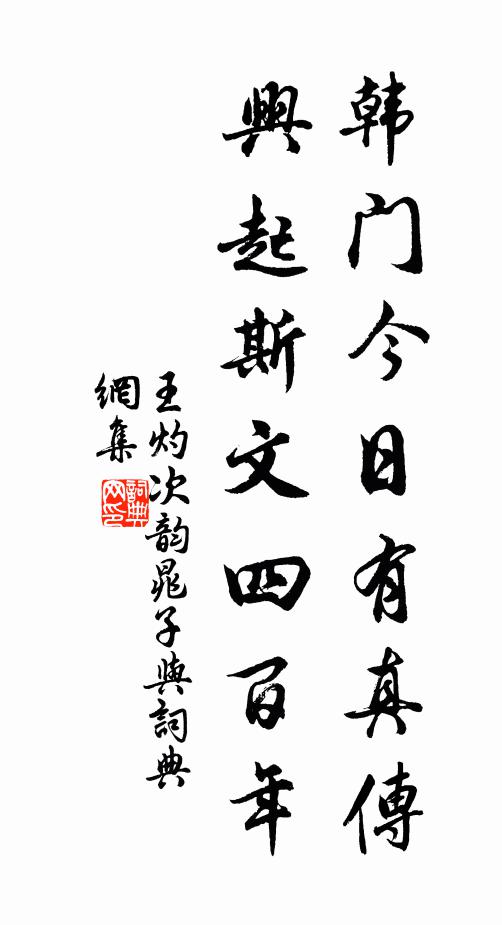 韩门今日有真傳
興起斯文四百年
王灼次韵晁子與詞典
網集
詞典網印